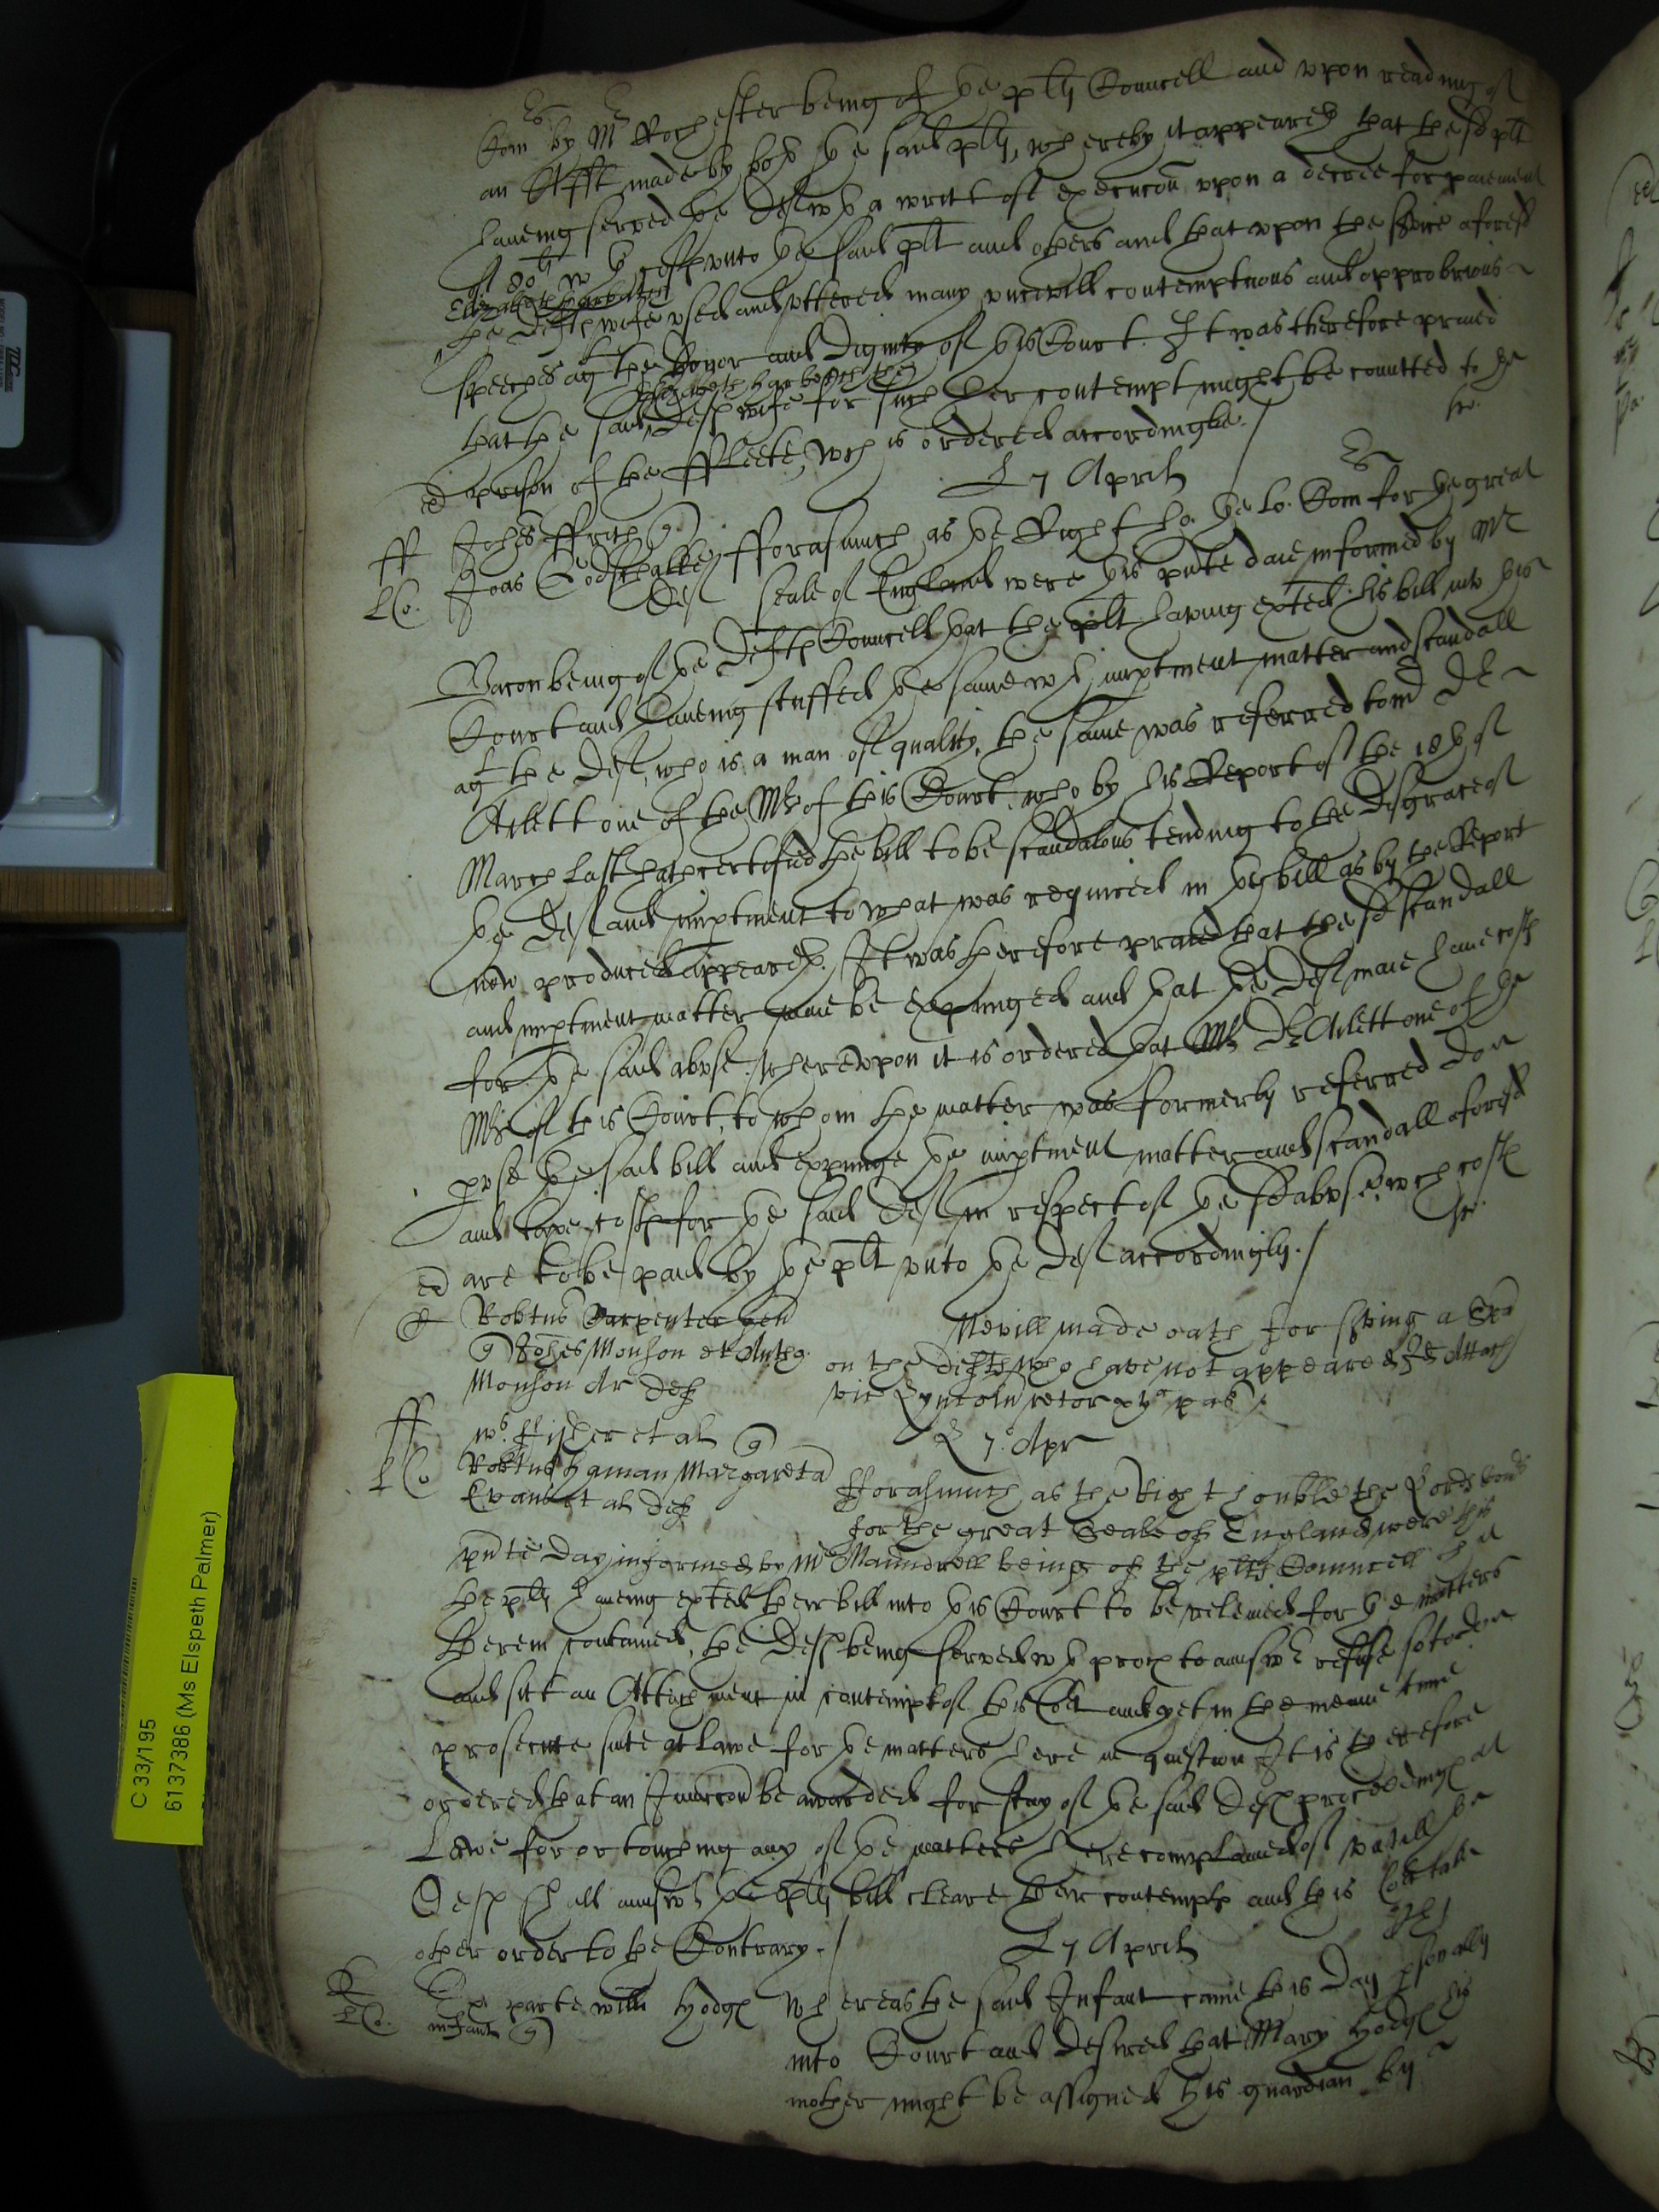 Com̃ by Mr Rochester being of ye plts Councell and vpon reading of
an Afft made by both ye said plts, whereby it appeareth that the sd plt
haueing serued ye deft wth a writt of execucõn vpon a decree for paiement
of wth vnto ye said plt and others and that vpon the service aforesd
Elizabeth
the defts wife vsed and vttered many vncivill contemptuous and opprobrious
speeches agt the honor and dignity of this Court. It was therefore praied
Elizabeth
that the said defts wife for such her contempt might be comitted to ye
prison of the ffleete, wch is ordered accordinglie.
L 7 April
Johes ffrith qr
Joas Godschalke deft
fforasmuch as ye Right ho: ye lo: Com̃ for ye great
seale of England were this pnte daie informed by Mr
Bacon being of ye Defts Councell that the plt having exħted his bill into this
Court and haueing stuffed ye same wth imptinent matter and scandall
agt the deft, who is a man of quality, the same was referred to mr Dr
Ailett one of the Mrs of this Court, who by his Report of the 18th of
March last hath certified the bill to be scandalous tending to the disgrace of
ye deft and imptinent to what was required in ye bill as by the Report
now produced appeareth. It was therefore praied that the sd scandall
and imptinent matter maie be expunged and that ye deft maie haue costs
for ye said abvse. Wherevpon it is ordered that Mr Dr Ailett one of ye
Mrs of this Court, to whom the matter was formerly referred doe
pvse ye said bill and expunge ye imptinent matter and scandall aforesd
and taxe costs for ye said deft in respect of ye sd abvse, wch costs
are to be paid by ye plt vnto ye deft accordingly.
Robtus Carpenter gen
qr Johes Monson et Antho:
Monson Ar defts
Nevill made oath for serving a
on the defts who have not appeared Attach
vic Lyncoln retor pas
L 7o Apr
Wm Fisher et al qr
Robtus Haman Margareta
Evans et al defts
fforasmuch as the Right honble the Lords Com̃
for the great Seale of England were this
pnte day informed by Mr Maundrell being of the plts Councell that
the plts haueing exħted their bill into this Court to be releiued for ye matters
therein contained, the defts being serued wth proces to answr refuse so to doe
and sitt an Attachment in contempt of this Cort and yet in the meane time
prosecute suite at lawe for ye matters here in question It is therefore
ordered that an Iniuncc̃on be awarded for stay of ye said defts proceedings at
Lawe for or touching any of ye matters here complained of vntill ye
Defts shall answr ye plts bill cleare their contempts and this Cort take
other order to the Contrary.
L 7 April
Ex parte Willi Hodges
infant qr
Whereas the said Infant came this day psonally
into Court and desired that Mary Hodges his
mother might be assigned his guardian by
C 33/195
6137386 (Ms Elspeth Palmer)